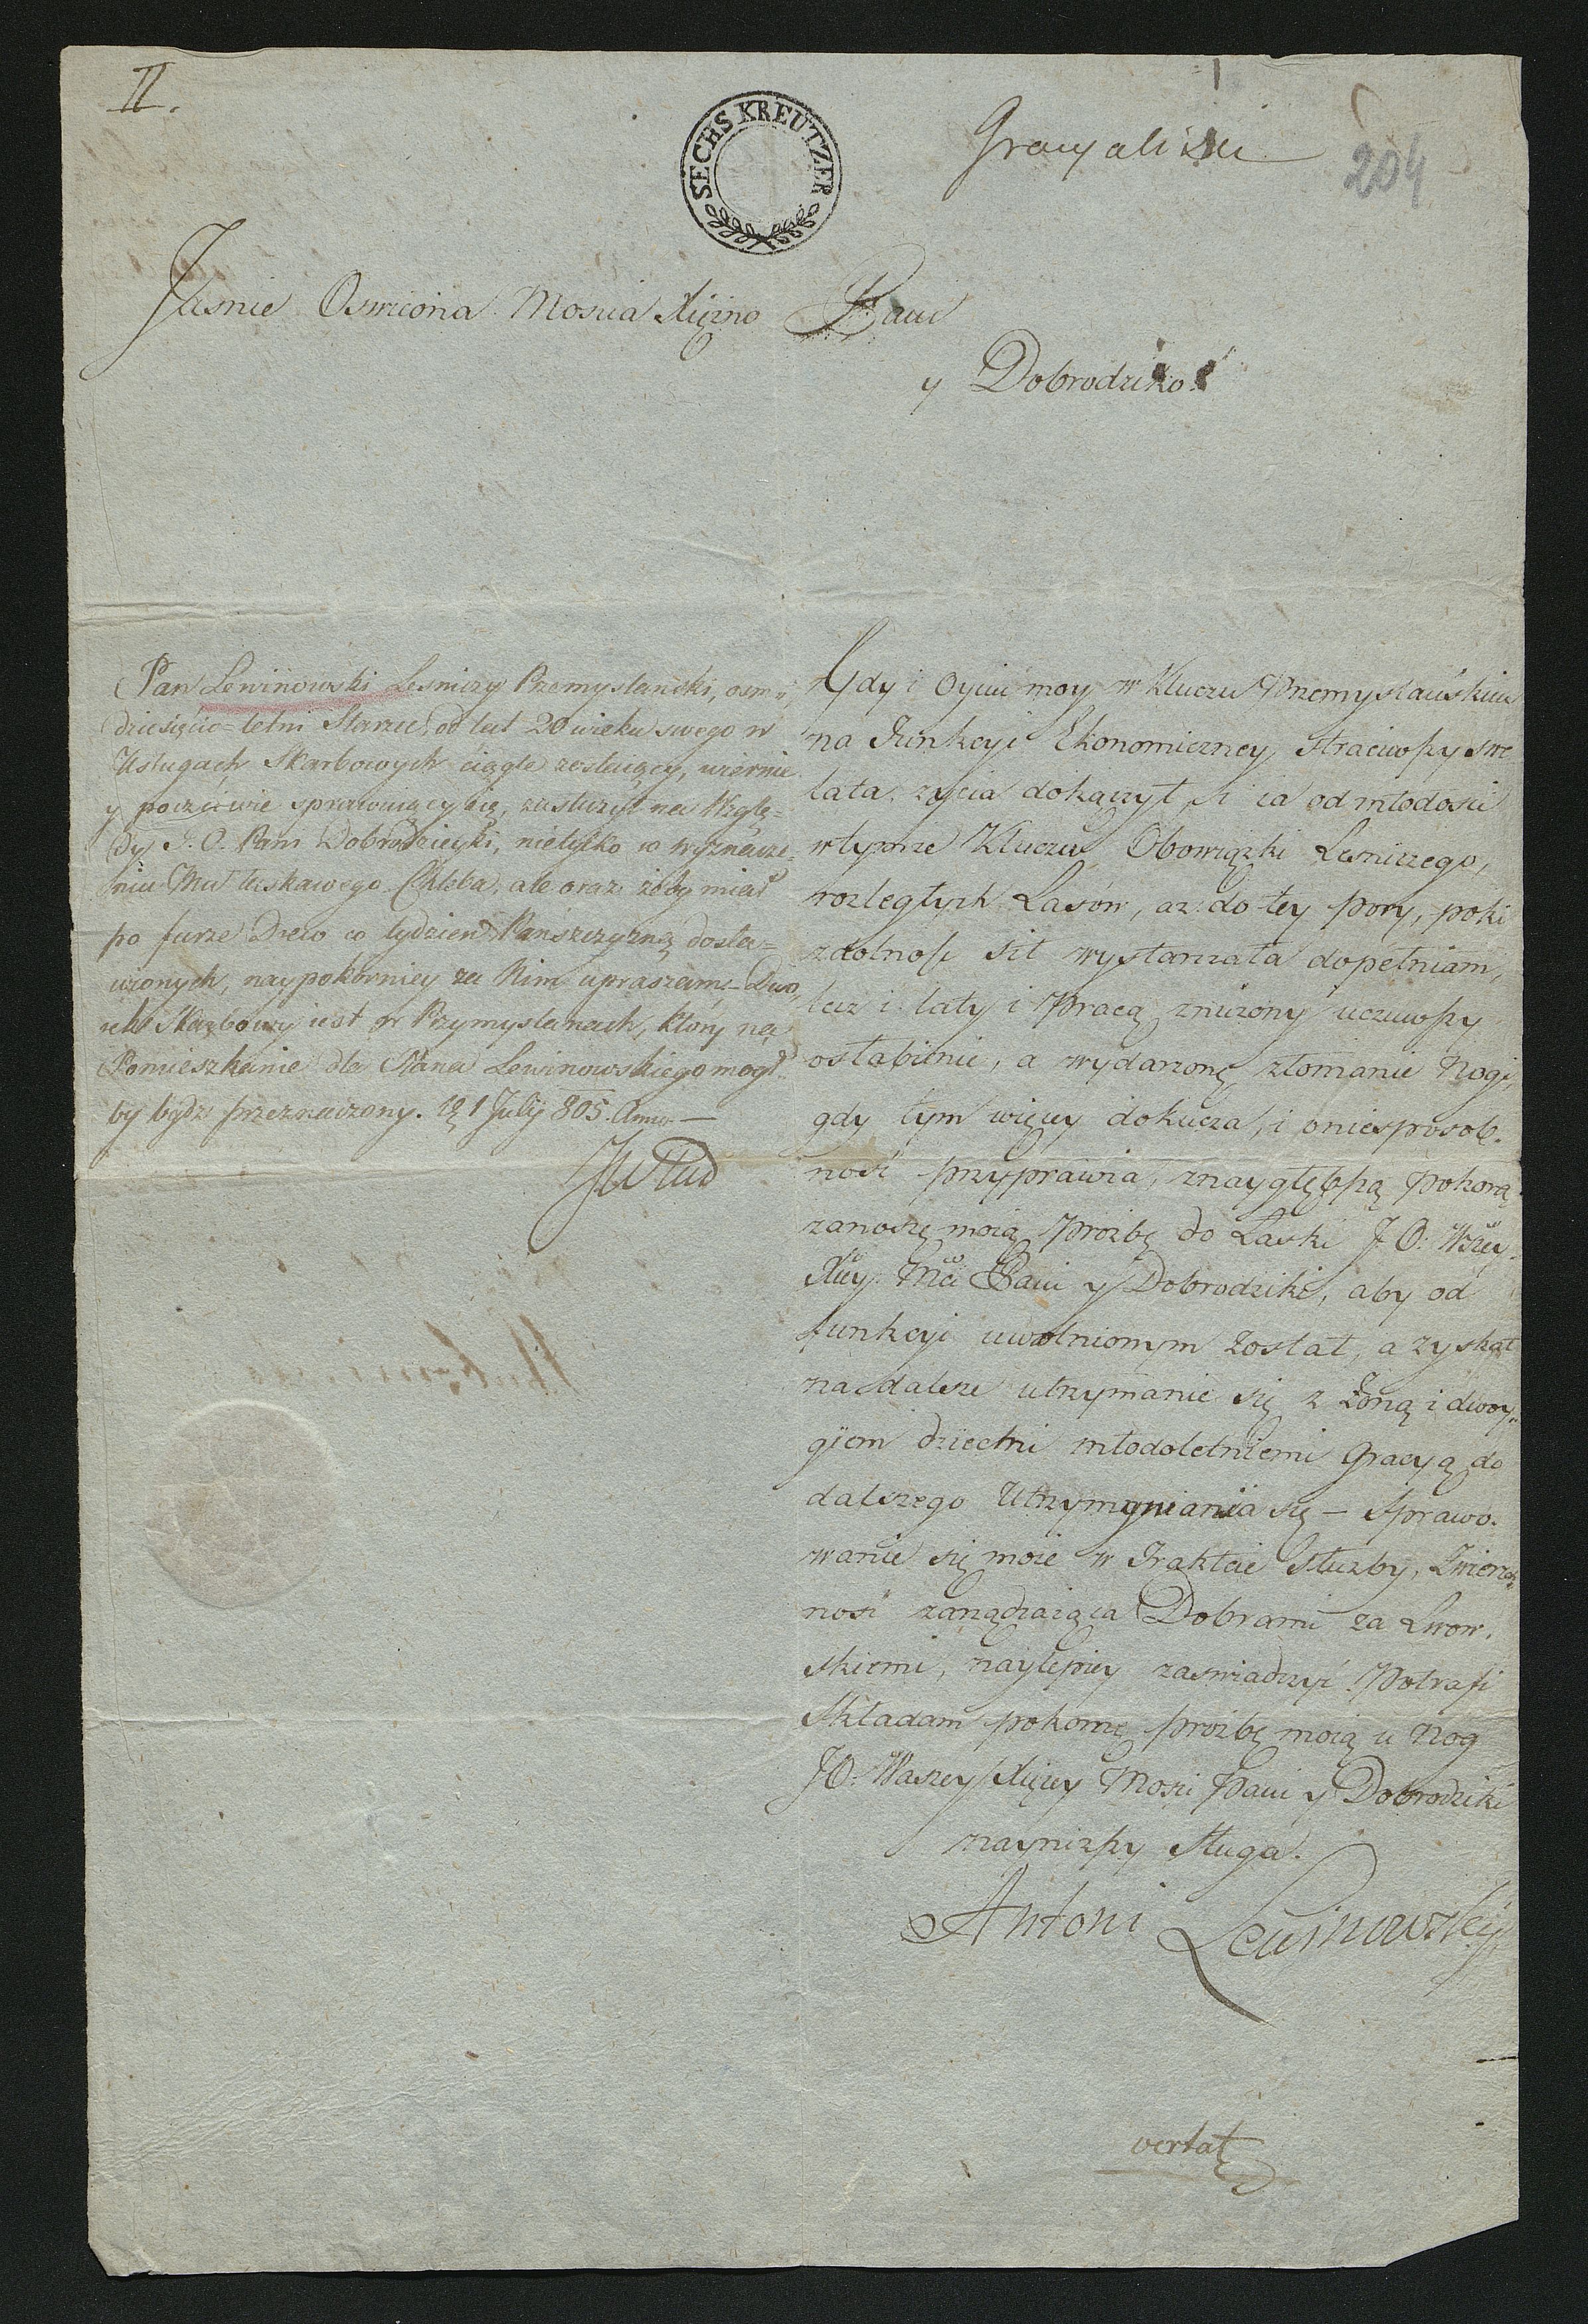 II.
SECHS KREUTZER
Gracyaliski
204
Jaśnie Oswiciona Mościa Xiężno Pani
y Dobrodziko!
Pan Lewinowski Lesniczy Przemyslański, osm=
dziesięcio=letni Starzec, od lat 20 wieku swego w
Usługach Skarbowych ciągle zostaiący, wiernie
y poczciwie sprawuiący się, zasłużył na Wzglę=
dy J. O. Pani Dobrodzieyki, nietylko w wyznacze=
niu Mu łaskawego Chleba, ale oraz żeby miał
po furze Drew co tydzień Pańszczyzną dosta=
wionych, naypokorniey za Nim upraszamy – Dwo,
rek Skarbowy iest w Przymyslanach, który na
Pomieszkanie dla Pana Lewinowskiego mogł
by bydz przeznaczony. 1 July 805. Anno —
Gdy i Oyciec moy w Kluczu Przemyslańskim
na Funkcyi Ekonomiczney straciwszy swe
lata życia dokączył, i ia od młodości
w tymże Kluczu Obowiązki Lesniczego,
rozległych Lasów, aż do tey pory, poki
zdolność sił wystarczała dopełniam,
lecz i laty i Pracą zniżony uczuwszy
osłabienie, a wydarzone złomanie Nogi,
gdy tym więcey dokucza, i oniesposob.
ność przyprawia, znaygłębszą pokorą
zanoszę moią Prozbę do Łaski J. O. Wszey
Xcey Mci Pani y Dobrodziki, aby od
funkcyi uwolnionym został, a zyskał
na dalsze utrzymanie się z Żoną i dwoy„
giem dziećmi młodoletniemi Gracyą do
dalszego Utrzymania się – Sprawo.
wanie się moie w Trakcie Służby, Zwierzch
ność zarządzaiąca Dobrami za Lwow.
skiemi, naylepiey zaswiadczyć Potrafi
Składam pokorne prozbę moią u Nog
JO: Waszey Xiącey Mosci Pani y Dobrodziki
naynizszy Sługa.
Antoni Lewinowsky
vertat